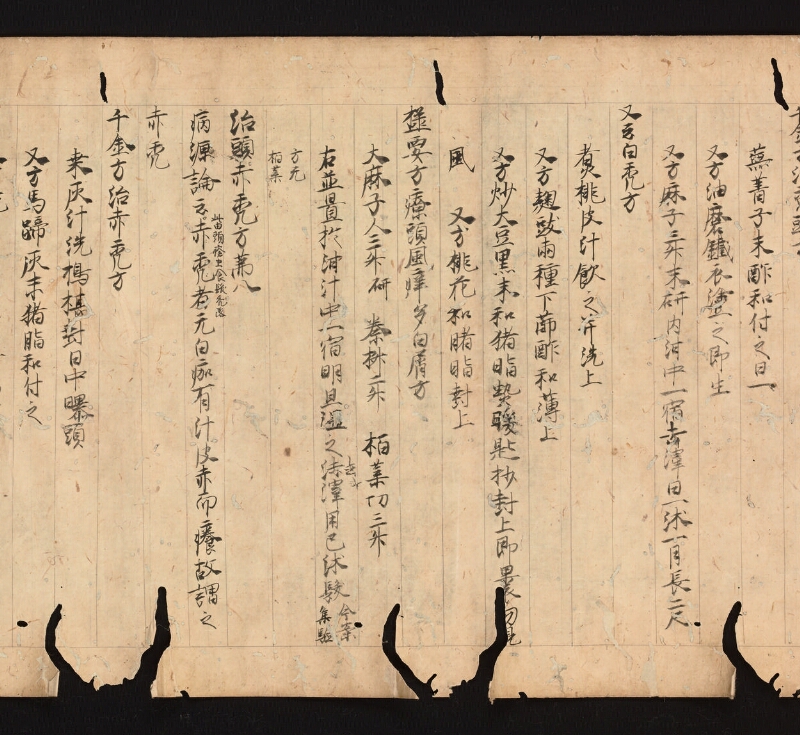 蕪菁子末酢和付之日一
又方油磨鐵衣塗之即生
又方麻子三升末研内泔中一宿去滓日一沐一月長二尺
又云白禿方
煮桃皮汁飲之并洗上
又方麹豉兩種下篩酢和薄上
又方炒大豆黒末和猪脂熱暖匙抄封上即裹勿見
風 又方桃花和猪脂封上
極要方療頭風痒多白屑方
大麻子人三升研 秦椒二升 柏葉切三升
右並置於泔汁中一宿明旦温之去滓用已沐髮 今案集驗
方无柏葉
治頭赤禿方第八
病源論云赤禿者无白痂有汁皮赤而癢故謂之
赤禿
千金方治赤禿方
桑灰汁洗椹封日中曝頭
又方馬蹄灰末猪脂和付之